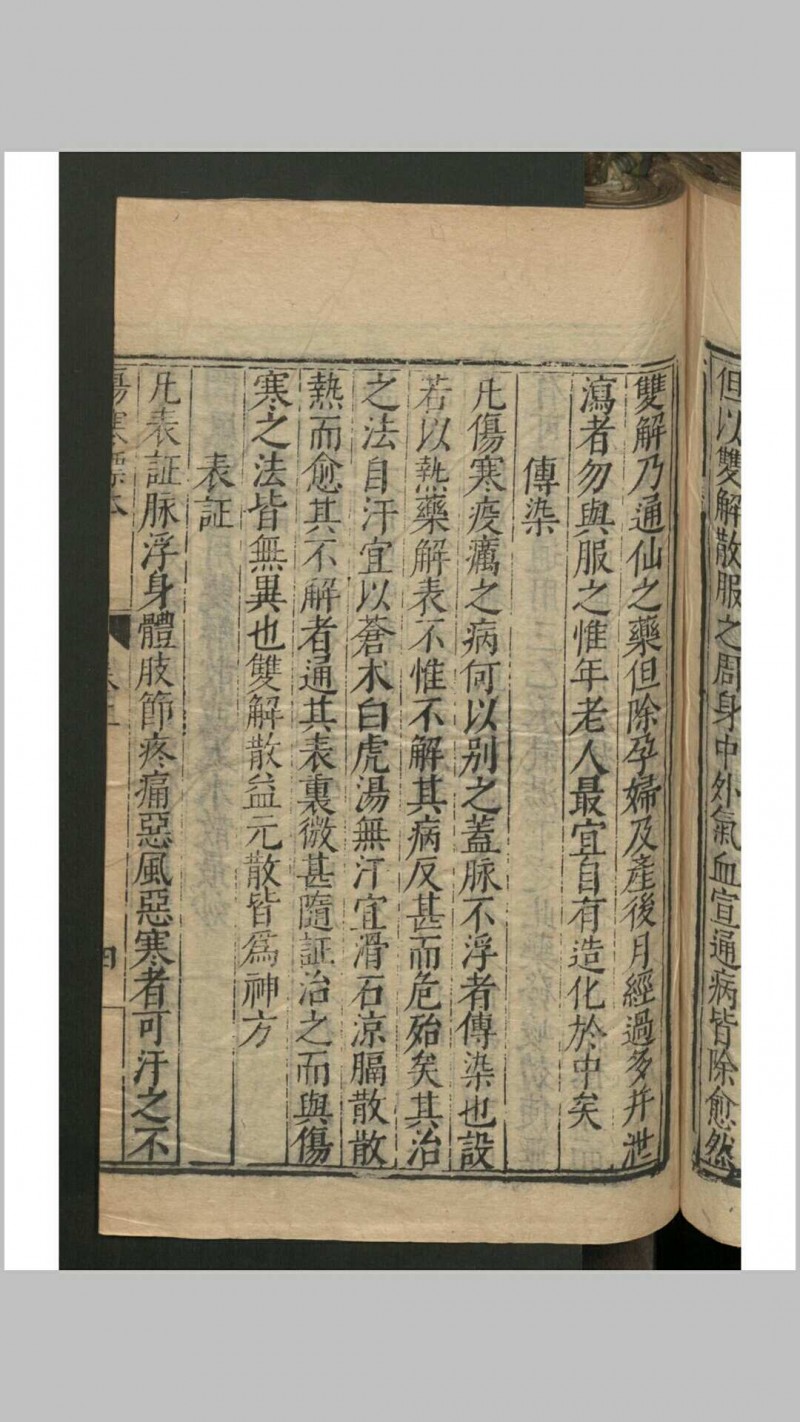 但以雙解散服之周身中外氣血宣通病皆除愈然
雙解乃通仙之藥但除孕婦及產後月經過多并泄
瀉者勿與服之惟年老人最宜自有造化於中矣
傳染
凡傷寒疫癘之病何以别之蓋脉不浮者傳染也設
若以熱藥解表不惟不解其病反甚而危殆矣其治
之法自汗宜以蒼术白虎湯無汗宜滑石凉膈散散
熱而愈其不解者通其表裏微甚隨証治之而與傷
寒之法皆無異也雙解散益元散皆爲神方
表証
凡表証脉浮身體肢節疼痛惡風惡寒者可汗之不
傷寒標本